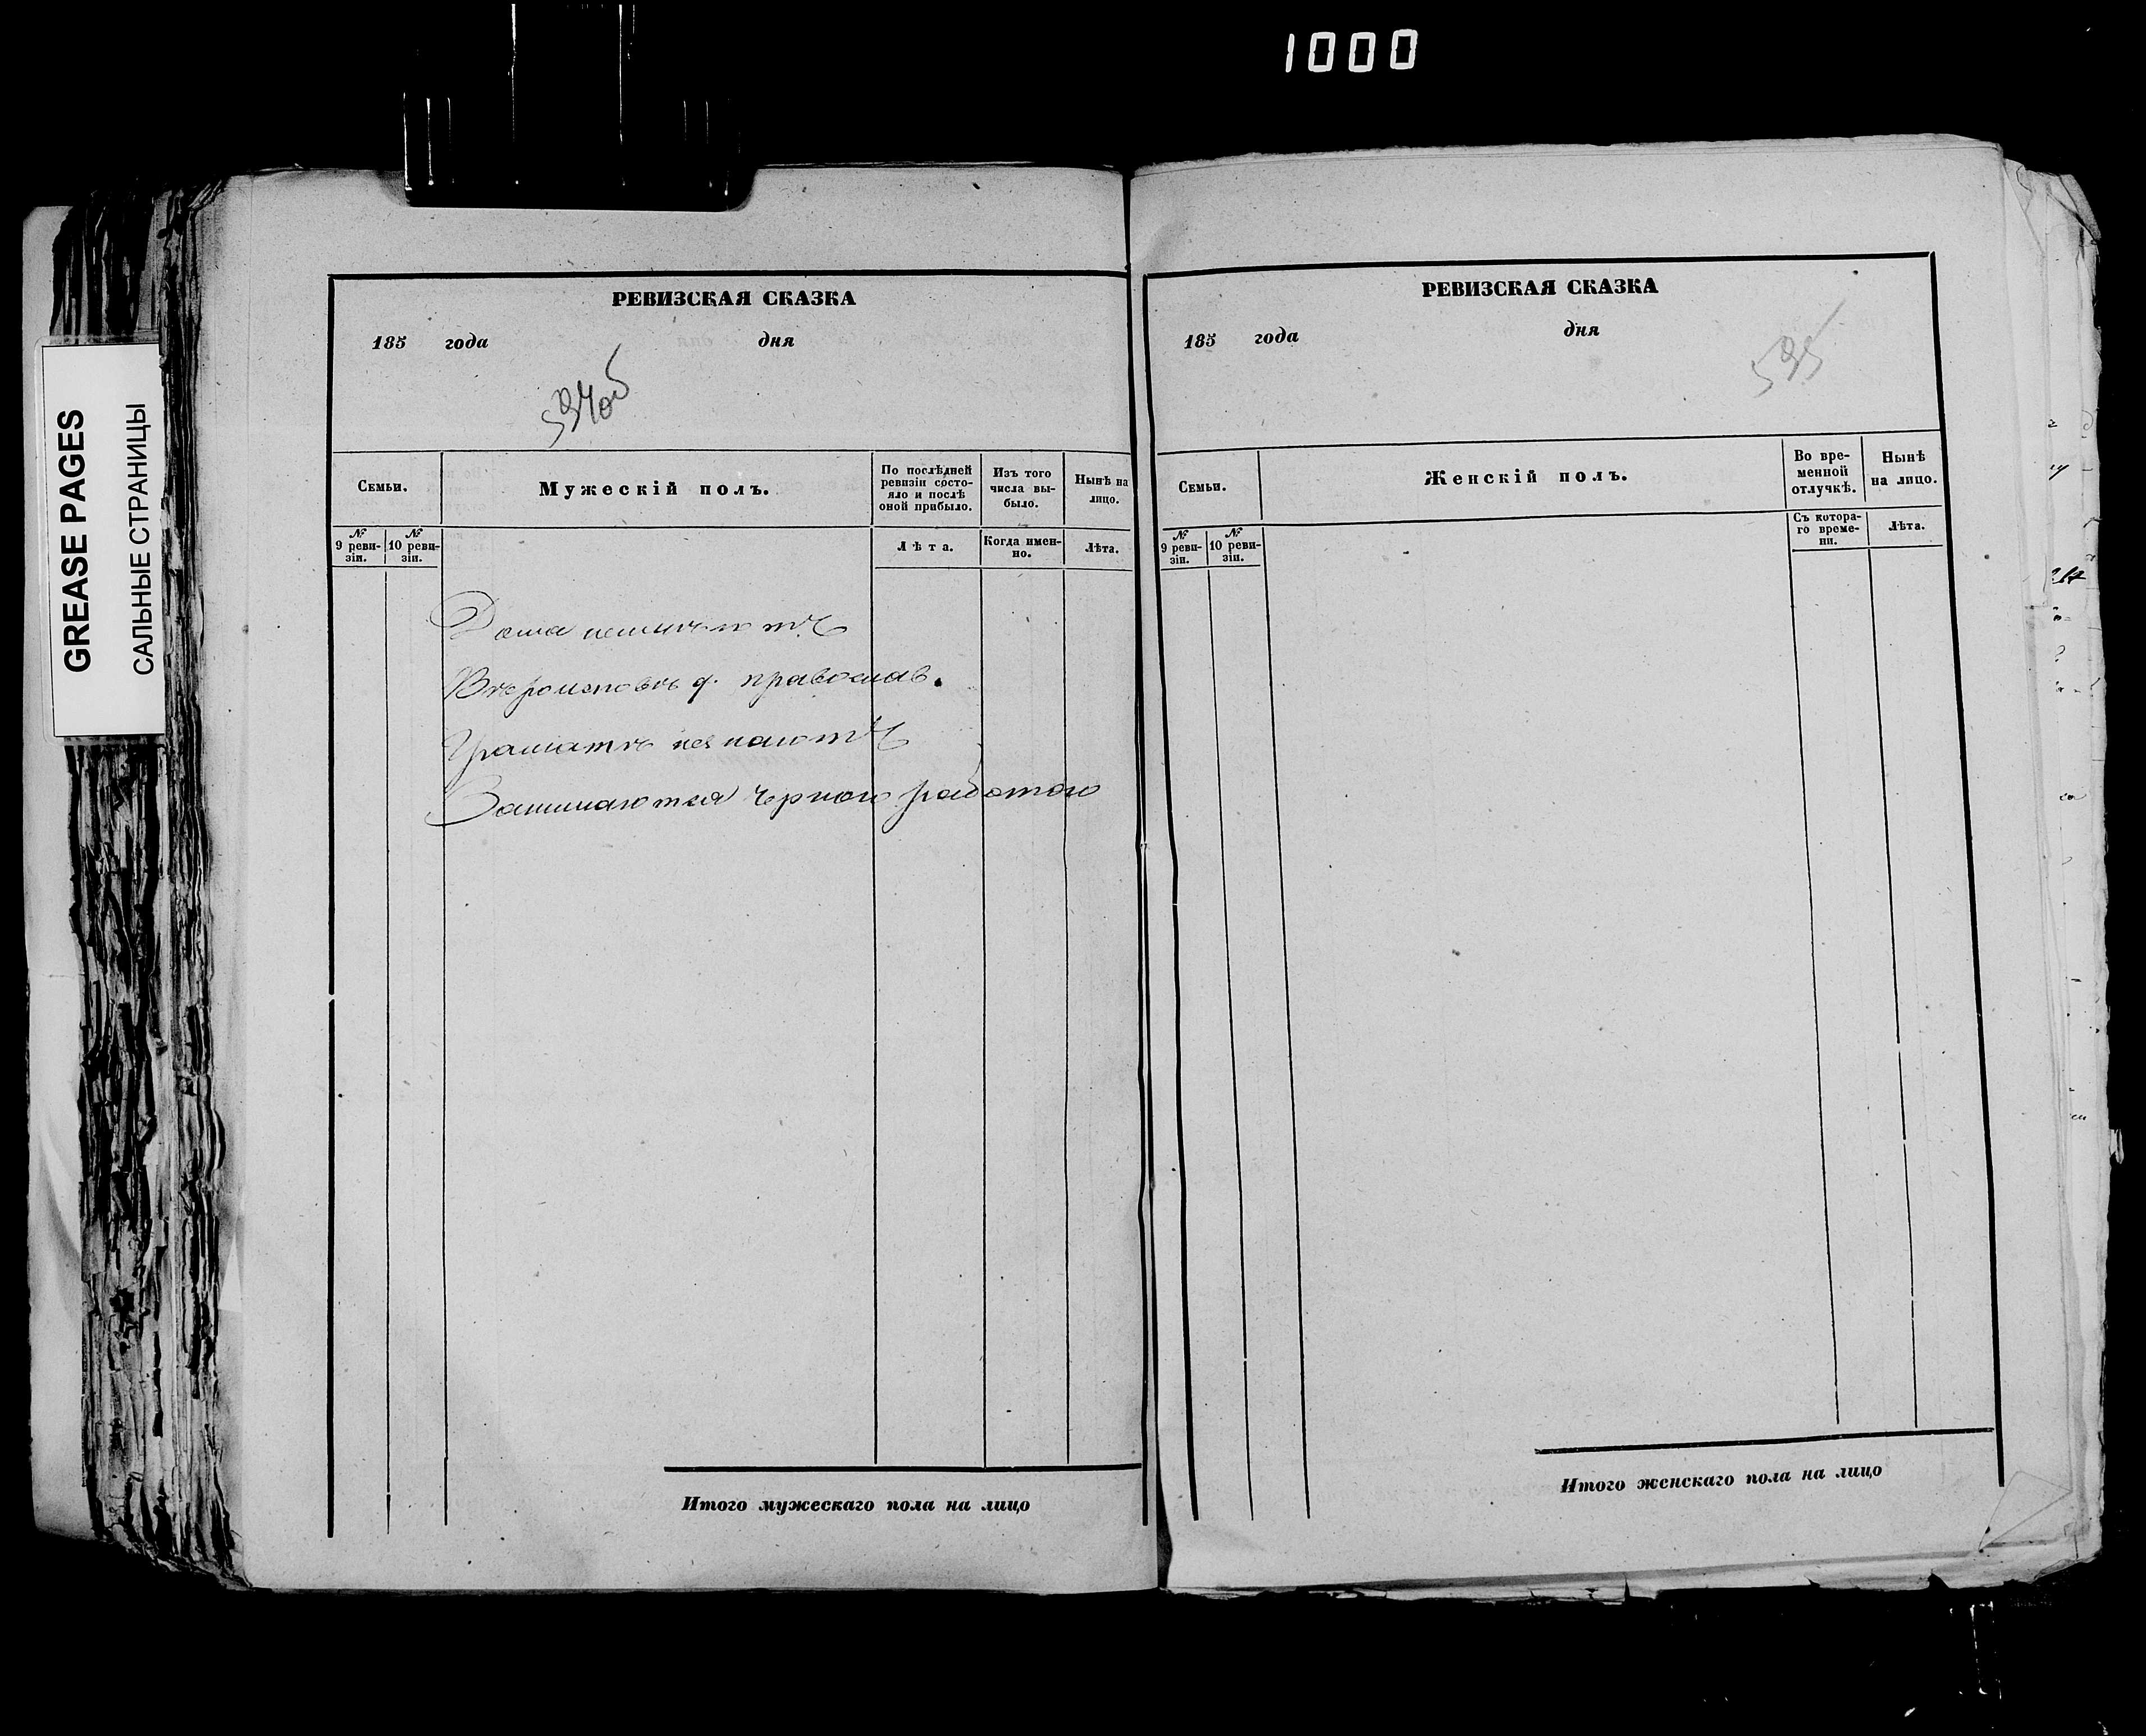 1000
GREASE PAGES
САЛЬНЫЕ СТРАНИЦЫ
РЕВИЗСКАЯ СКАЗКА
185 года дня
534об
Семьи.
Мужескій полъ.
По послѣдней ревизіи состояло и послѣ оной прибыло.
Изъ того числа выбыло.
Нынѣ на лицо.
№ 9 ревизіи.
№ 10 ревизіи.
Лѣта.
Когда именно.
Лѣта.
Дома неимѣютъ
Вѣроисповѣд. православ.
Граматѣ незнаютъ
Занимаются черною работою
Итого мужескаго пола на лицо
РЕВИЗСКАЯ СКАЗКА
185 года дня
535
Семьи.
Женскій полъ.
Во временной отлучкѣ.
Нынѣ на лицо.
№ 9 ревизіи.
№ 10 ревизіи.
Съ котораго времени.
Лѣта.
Итого женскаго пола на лицо